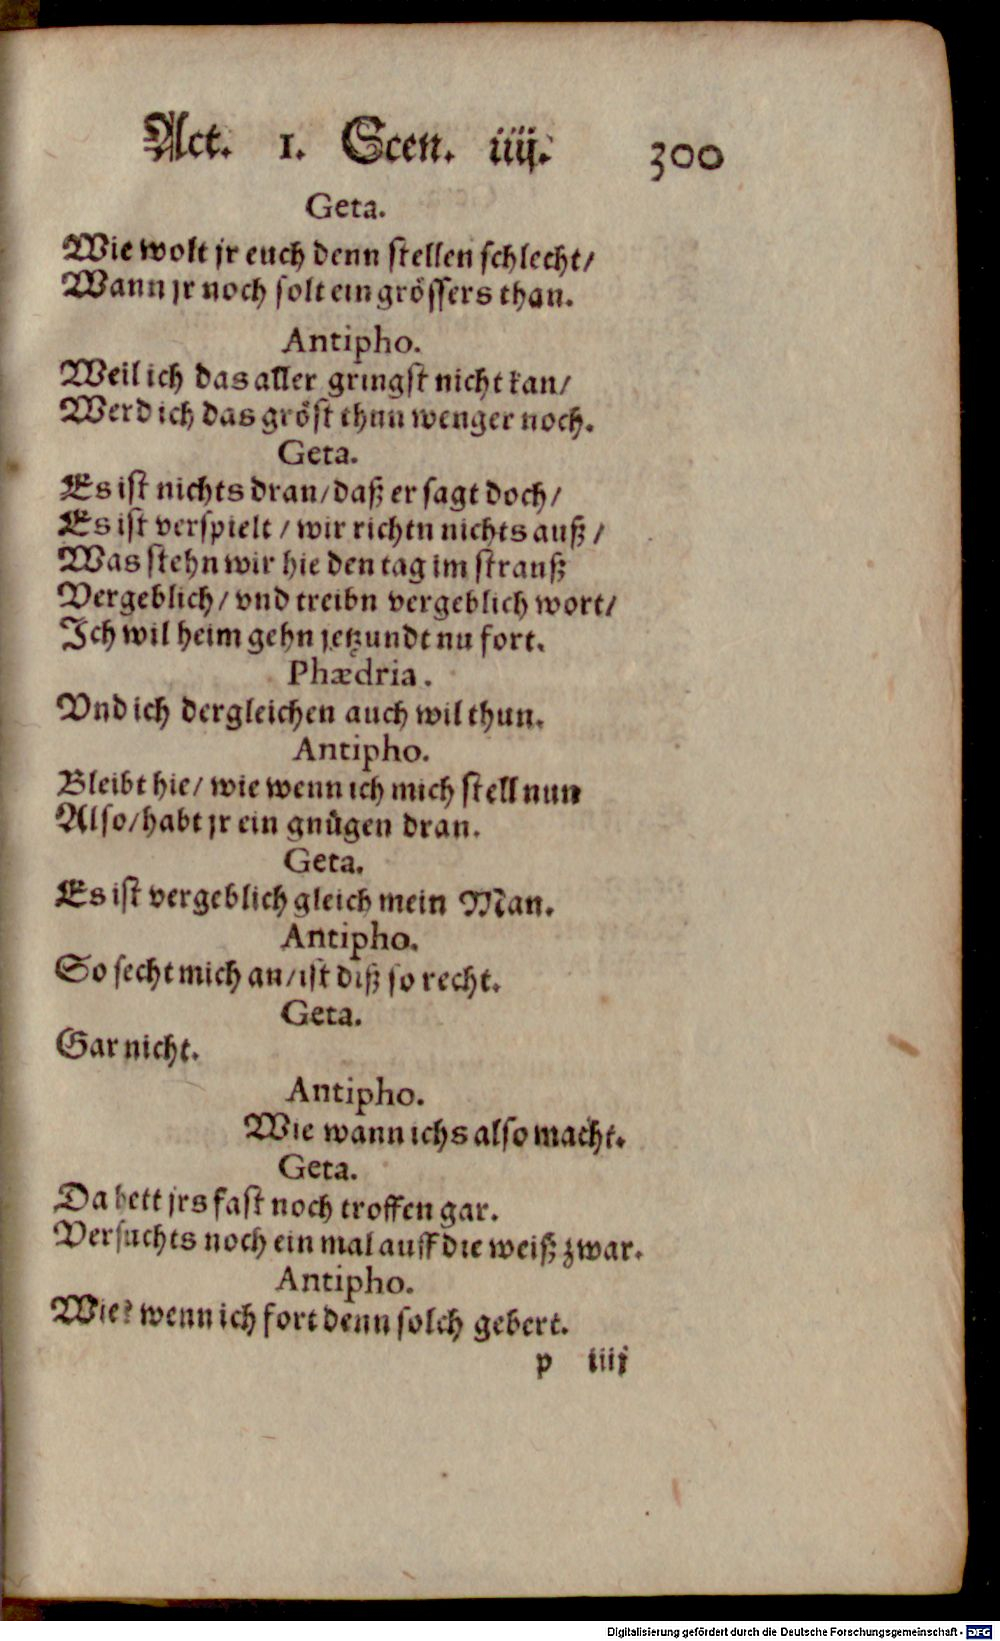 Act. 1. Scen. iiij. 300
Geta.
Wie wolt jr euch denn stellen schlecht/
Wann jr noch solt ein grössers than.
Antipho.
Weil ich das aller gringst nicht kan/
Werd ich das gröst thun wenger noch.
Geta.
Es ist nichts dran/daß er sagt doch/
Es ist verspielt / wir richtn nichts auß /
Was stehn wir hie den tag im strauß
Vergeblich/ vnd treibn vergeblich wort/
Ich wil heim gehn jetzundt nu fort.
Phædria.
Vnd ich dergleichen auch wil thun.
Antipho.
Bleibt hie/ wie wenn ich mich stell nun
Also/habt jr ein gnügen dran.
Geta.
Es ist vergeblich gleich mein Man.
Antipho.
So secht mich an/ist diß so recht.
Geta.
Gar nicht.
Antipho.
Wie wann ichs also macht.
Geta.
Da hett jrs fast noch troffen gar.
Versuchts noch ein mal auff die weiß zwar.
Antipho.
Wie? wenn ich fort denn solch gebert.
p iiij
Digitalisierung gefördert durch die Deutsche Forschungsgemeinschaft - DFG